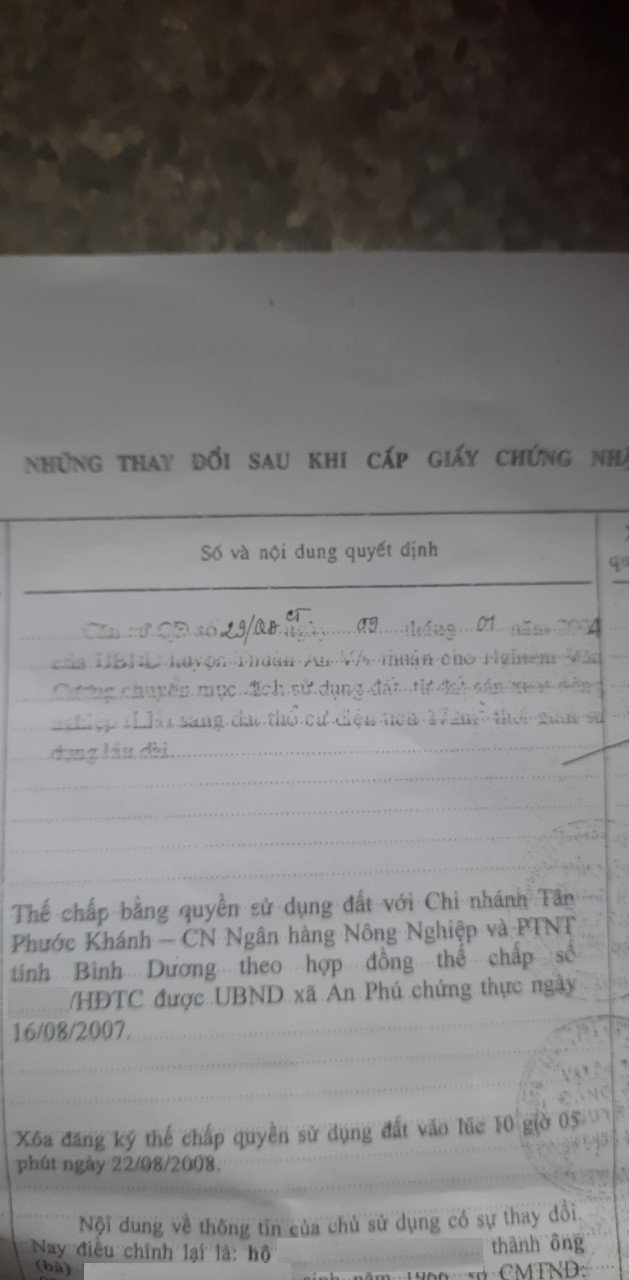 NHỮNG THAY ĐỔI SAU KHI CẤP GIẤY CHỨNG
Số và nội dung quyết định
Căn cứ QĐ số 29/ ngày 09 tháng 01 năm 2004
của UBND huyện Thuận An V/v thuận cho Nghiêm Văn
Cương chuyển mục đích sử dụng đất từ đất sản xuất nông
nghiệp sang đất thổ cư diện tích thời gian sử
dụng lâu dài.
Thế chấp bằng quyền sử dụng đất với Chi nhánh Tân
Phước Khánh – CN Ngân hàng Nông Nghiệp và PTNT
tỉnh Bình Dương theo hợp đồng thế chấp số
/HĐTC được UBND xã An Phú chứng thực ngày
16/08/2007.
Xóa đăng ký thế chấp quyền sử dụng đất vào lúc 10 giờ 05
phút ngày 22/08/2008.
Nội dung về thông tin của chủ sử dụng có sự thay đổi
Nay điều chỉnh lại là: hộ thành ông
(bà) sinh năm 1966 số CMTND: